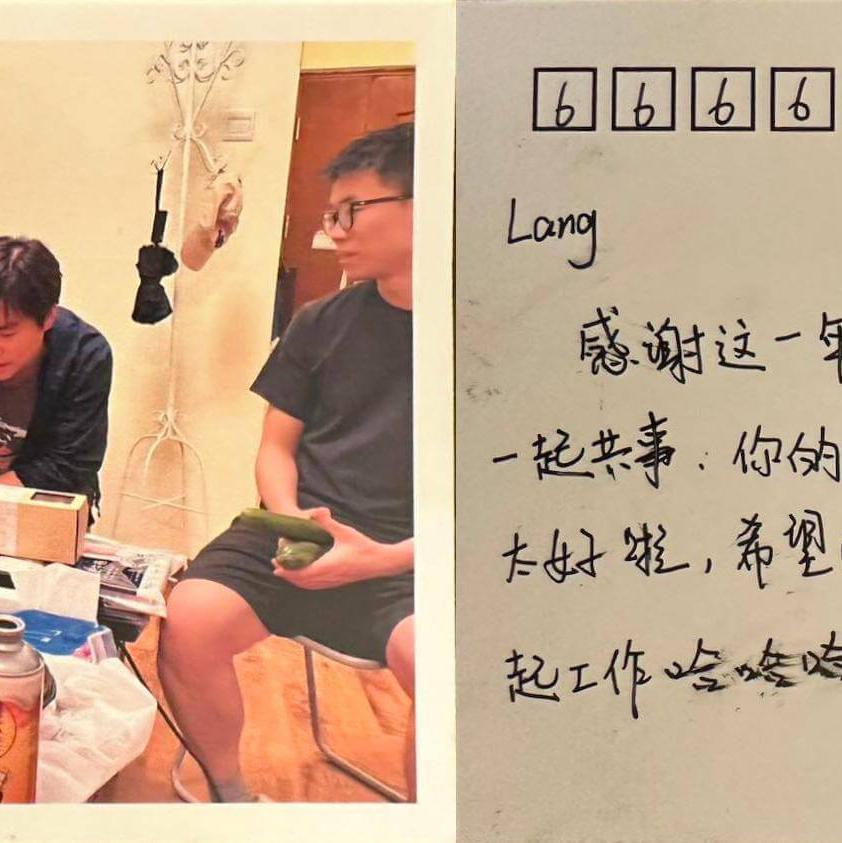 6 6 6 6
Lang
感谢这一年
一起共事.你的
太好啦,希望
起工作哈哈哈